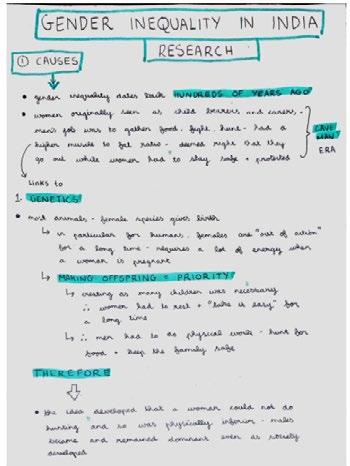 GENDER INEQUALITY IN INDIA
RESEARCH
① CAUSES
• gender inequality dates back HUNDREDS OF YEARS AGO
• women originally seen as child bearers and carers -
men's job was to gather food, fight, hunt - had a
higher muscle to fat ratio - deemed right that they
go out while women had to stay safe + protected
CAVE
MAN
ERA
LINKS to
1. GENETICS
• most animals - female species gives birth
↳ in particular for humans, females are "out of action"
for a long time - requires a lot of energy when
a woman is pregnant
↳ MAKING OFFSPRING = PRIORITY
↳ creating as many children was necessary
∴ women had to rest + "take it easy" for
a long time
↳ ∴ men had to do physical work - hunt for
food + keep the family safe
THEREFORE
• the idea developed that a woman could not do
hunting and so was physically inferior - males
became and remained dominant even as society
developed